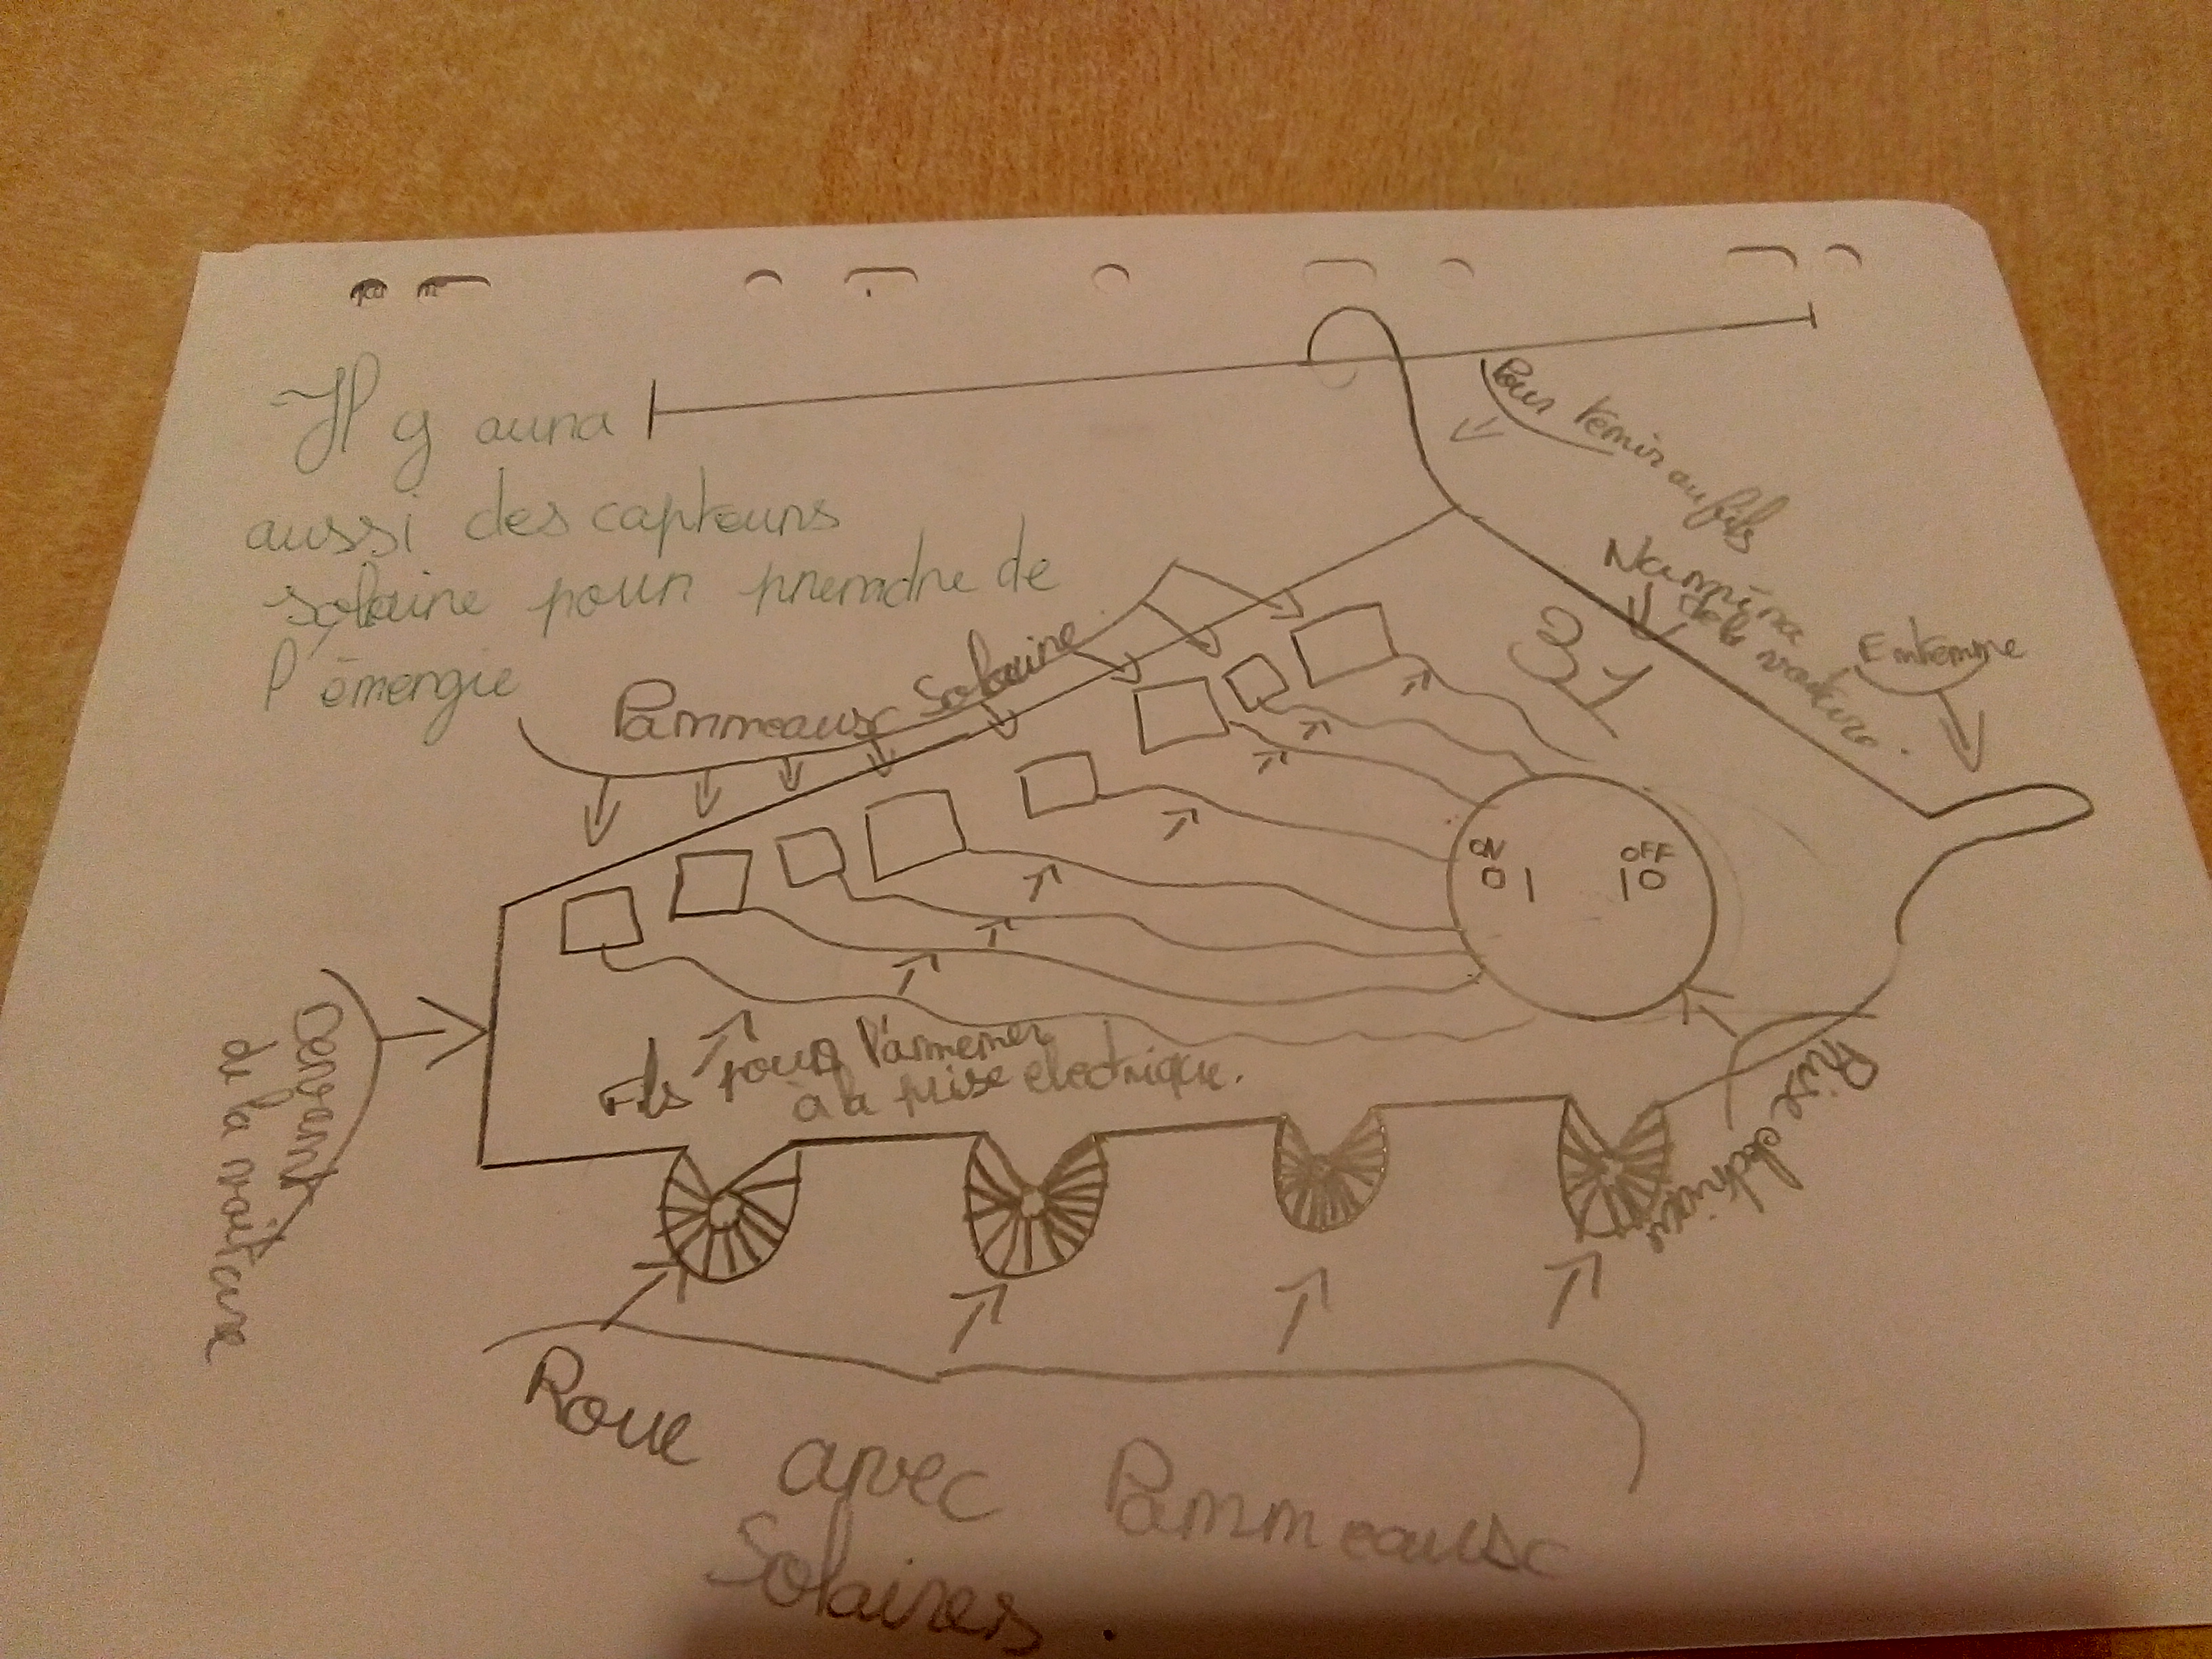 Il y aura
aussi des capteurs
solaire pour prendre de
l'énergie
Pour tenir au fils
Numéro
de la voiture.
Entenne
31
Panneaux Solaire
ON
OFF
01
10
Devant
de la voiture
Fils pour l'amener
à la prise electrique.
Prise electrique
Roue avec Panneaux
Solaires.